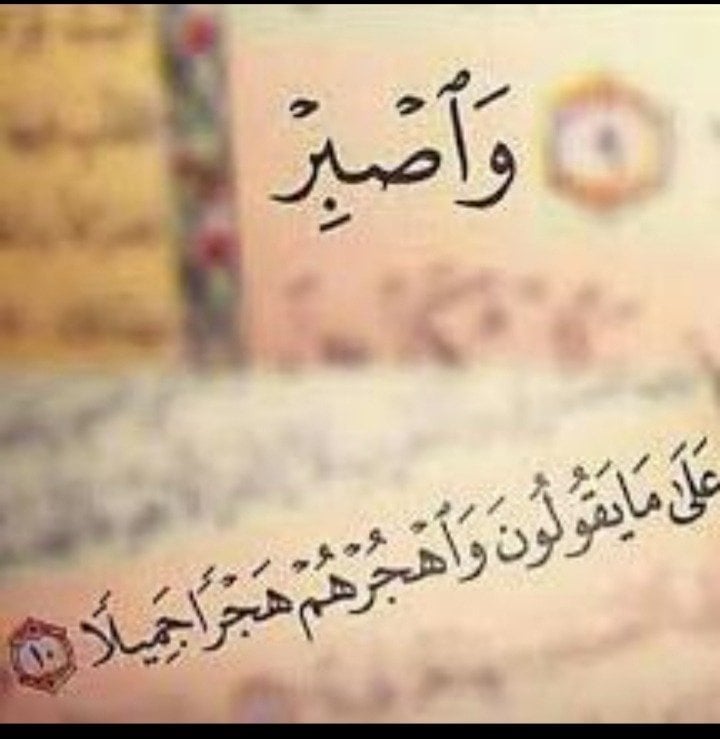 ٩ وَٱصْبِرْ
عَلَىٰ مَا يَقُولُونَ وَٱهْجُرْهُمْ هَجْرًا جَمِيلًا ١٠